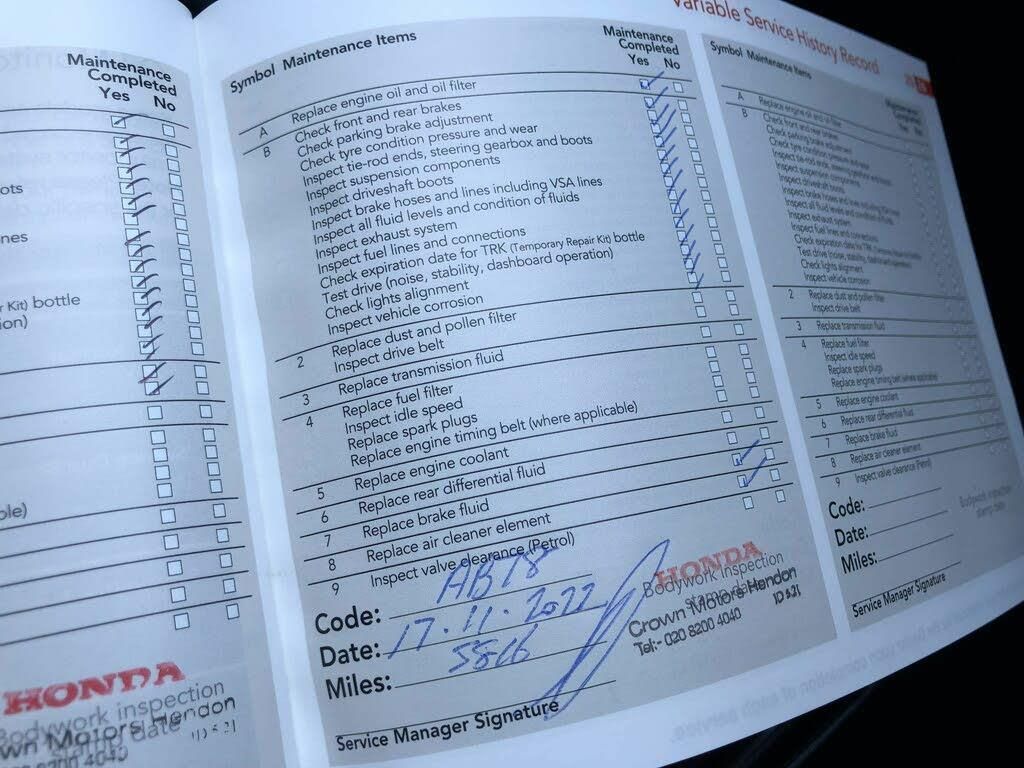 Variable Service History Record
Maintenance
Completed
Yes No
ots
nes
r Kit) bottle
ion)
ble)
HONDA
Bodywork inspection
stamp date
wn Motors Hendon
8200 4040
Symbol Maintenance Items
Maintenance
Completed
Yes No
A Replace engine oil and oil filter
B Check front and rear brakes
Check parking brake adjustment
Check tyre condition pressure and wear
Inspect tie-rod ends, steering gearbox and boots
Inspect suspension components
Inspect driveshaft boots
Inspect brake hoses and lines including VSA lines
Inspect all fluid levels and condition of fluids
Inspect exhaust system
Inspect fuel lines and connections
Check expiration date for TRK (Temporary Repair Kit) bottle
Test drive (noise, stability, dashboard operation)
Check lights alignment
Inspect vehicle corrosion
2 Replace dust and pollen filter
Inspect drive belt
3 Replace transmission fluid
4 Replace fuel filter
Inspect idle speed
Replace spark plugs
Replace engine timing belt (where applicable)
5 Replace engine coolant
6 Replace rear differential fluid
7 Replace brake fluid
8 Replace air cleaner element
9 Inspect valve clearance (Petrol)
Code: AB78
Date: 17.11.2022
Miles: 5816
Service Manager Signature
HONDA
Bodywork inspection
stamp date
Crown Motors Hendon
Tel:- 020 8200 4040
Symbol Maintenance Items
Maintenance
Completed
Yes No
A Replace engine oil and oil filter
B Check front and rear brakes
Check parking brake adjustment
Check tyre condition pressure and wear
Inspect tie-rod ends, steering gearbox and boots
Inspect suspension components
Inspect driveshaft boots
Inspect brake hoses and lines including VSA lines
Inspect all fluid levels and condition of fluids
Inspect exhaust system
Inspect fuel lines and connections
Check expiration date for TRK (Temporary Repair Kit) bottle
Test drive (noise, stability, dashboard operation)
Check lights alignment
Inspect vehicle corrosion
2 Replace dust and pollen filter
Inspect drive belt
3 Replace transmission fluid
4 Replace fuel filter
Inspect idle speed
Replace spark plugs
Replace engine timing belt (where applicable)
5 Replace engine coolant
6 Replace rear differential fluid
7 Replace brake fluid
8 Replace air cleaner element
9 Inspect valve clearance (Petrol)
Code:
Date:
Miles:
Bodywork inspection
stamp date
Service Manager Signature